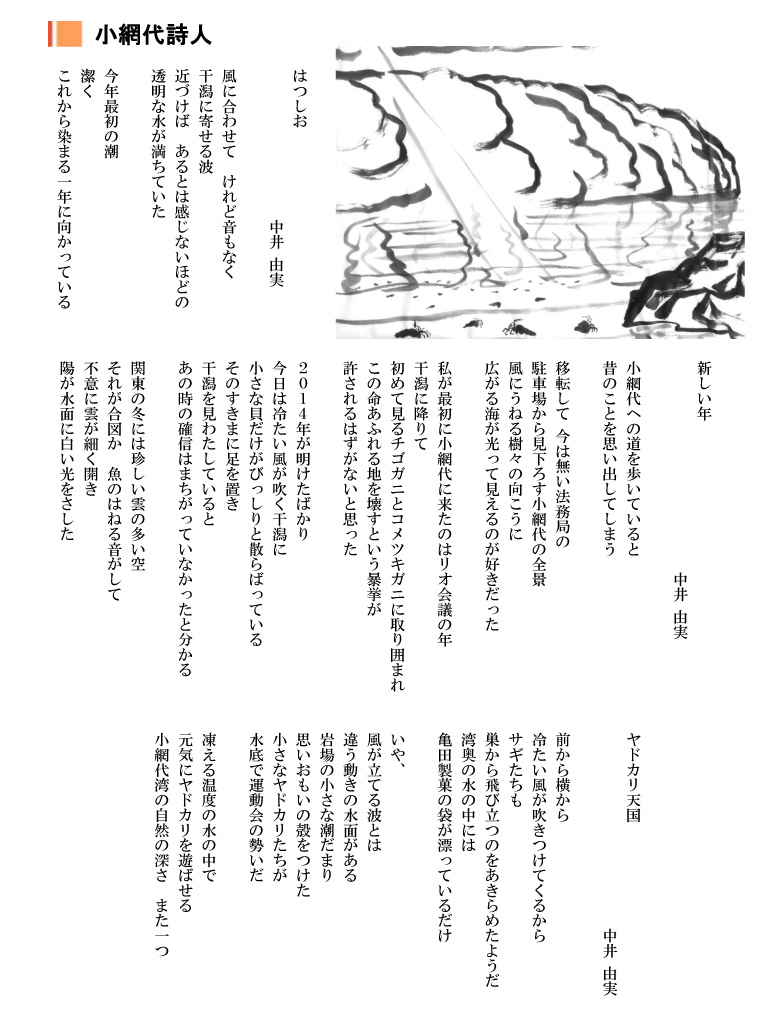 小網代詩人
はつしお
中井 由実
風に合わせて けれど音もなく
干潟に寄せる波
近づけば あるとは感じないほどの
透明な水が満ちていた
今年最初の潮
潔く
これから染まる一年に向かっている
新しい年
中井 由実
小網代への道を歩いていると
昔のことを思い出してしまう
移転して 今は無い法務局の
駐車場から見下ろす小網代の全景
風にうねる樹々の向こうに
広がる海が光って見えるのが好きだった
私が最初に小網代に来たのはリオ会議の年
干潟に降りて
初めて見るチゴガニとコメツキガニに取り囲まれ
この命あふれる地を壊すという暴挙が
許されるはずがないと思った
2014年が明けたばかり
今日は冷たい風が吹く干潟に
小さな貝だけがびっしりと散らばっている
そのすきまに足を置き
干潟を見わたしていると
あの時の確信はまちがっていなかったと分かる
関東の冬には珍しい雲の多い空
それが合図か 魚のはねる音がして
不意に雲が細く開き
陽が水面に白い光をさした
ヤドカリ天国
中井 由実
前から横から
冷たい風が吹きつけてくるから
サギたちも
巣から飛び立つのをあきらめたようだ
湾奥の水の中には
亀田製菓の袋が漂っているだけ
いや、
風が立てる波とは
違う動きの水面がある
岩場の小さな潮だまり
思いおもいの殻をつけた
小さなヤドカリたちが
水底で運動会の勢いだ
凍える温度の水の中で
元気にヤドカリを遊ばせる
小網代湾の自然の深さ また一つ